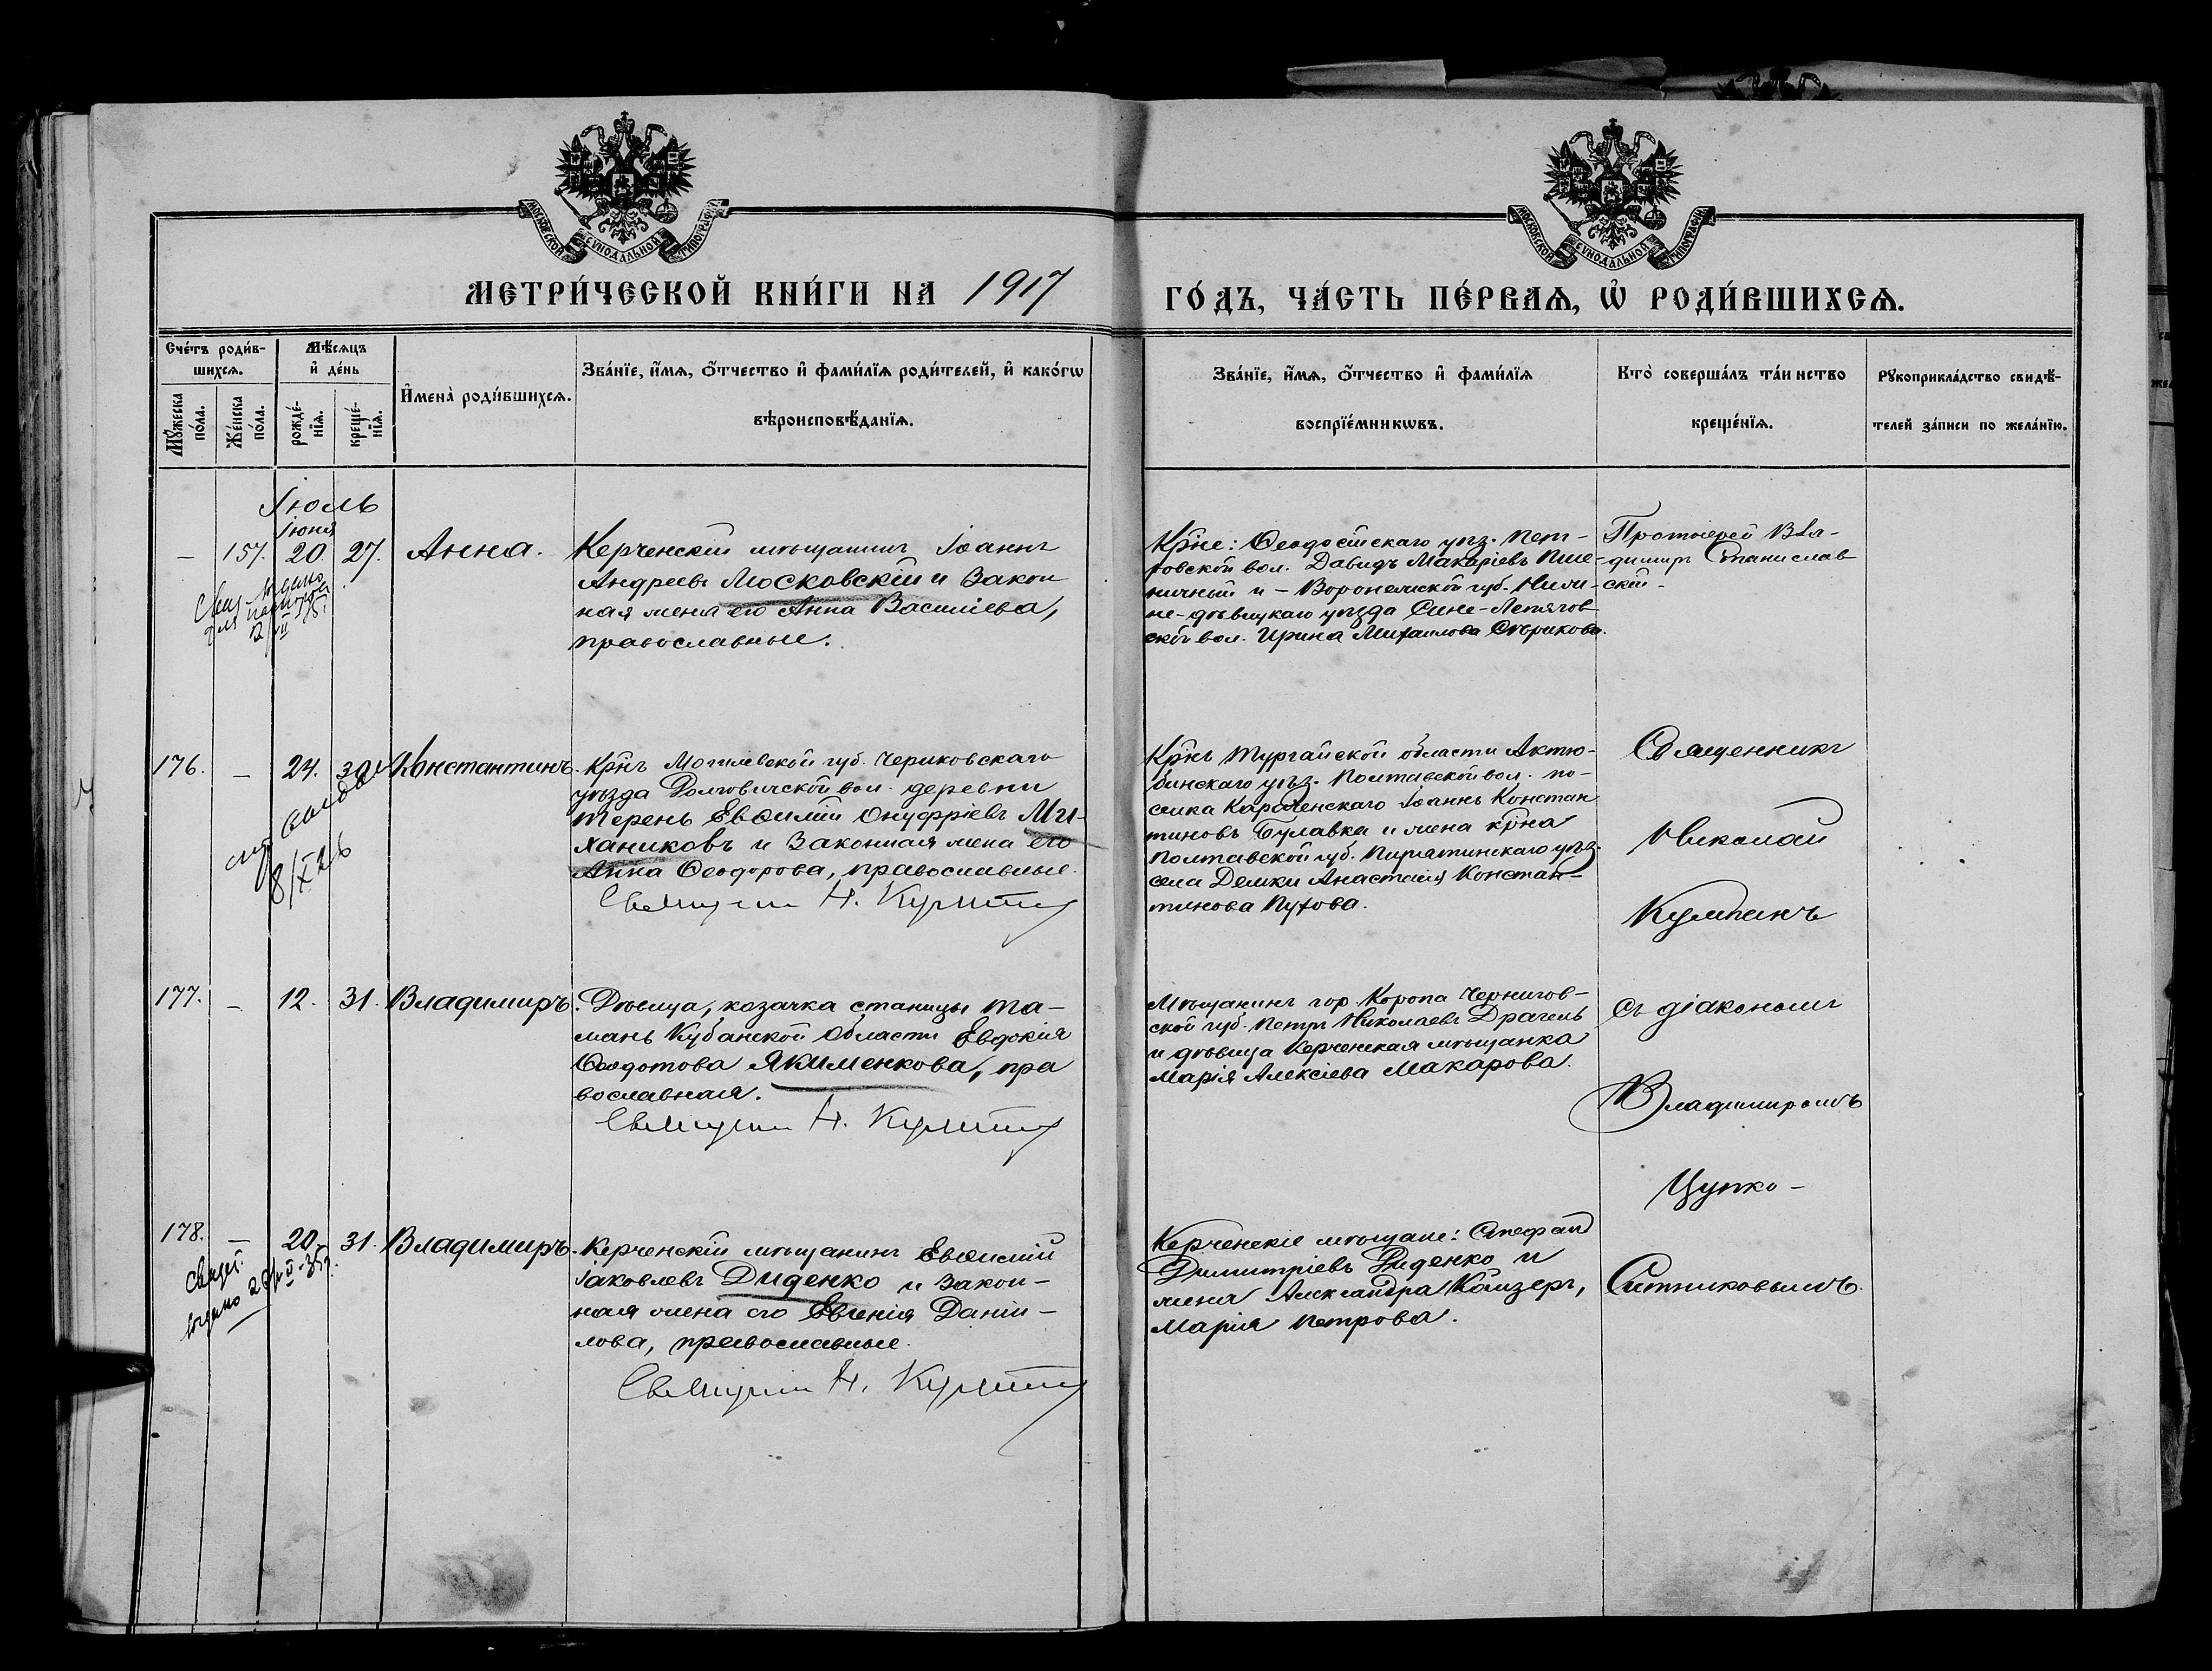 МОСКОВСКОЙ СѴНОДАЛЬНОЙ ТИПОГРАФІИ
МОСКОВСКОЙ СѴНОДАЛЬНОЙ ТИПОГРАФІИ
МЕТРИ́ЧЕСКОЙ КНИ́ГИ НА 1917
ГО́ДЪ, ЧА́СТЬ ПЕ́РВАѦ, Ѡ҆ РОДИ́ВШИХСѦ.
Сче́тъ роди́в-
шихсѧ.
Мꙋ́жеска
по́ла.
Же́нска
по́ла.
Мѣ́сѧцъ
и҆ де́нь
рожде́-
нїѧ.
креще́-
нїѧ.
И҆мена̀ роди́вшихсѧ.
Зва́нїе, и҆́мѧ, ѻ҆́тчество и҆ фами́лїѧ роди́телей, и҆ како́гѡ
вѣроисповѣ́данїѧ.
Зва́нїе, и҆́мѧ, ѻ҆́тчество и҆ фами́лїѧ
воспрїе́мникѡвъ.
Кто̀ соверша́лъ та́инство
креще́нїѧ.
Рꙋкоприкла́дство свидѣ́-
телей за́писи по жела́нїю.
Іюль
Іюня
— 157. 20. 27. Анна.
Керченскій мѣщанинъ Іоаннъ
Андреевъ Московскій и закон
ная жена его Анна Васильева,
православные.
Крне: Ѳеодосійскаго уѣз. Пет-
ровской вол. Давидъ Макаріевъ Пше-
ничный и – Воронежской губ. Нижн-
не-дѣвицкаго уѣзда Сине-Липягов
ской вол. Ирина Михаилова Стрикова.
Протоіерей Вла-
димиръ Станислав
скій –
176. — 24. 30. Константинъ.
8/X 26
Крнъ Могилевской губ. Чериковскаго
уѣзда Долговичской вол. деревни
Терень Евѳимій Онуфріевъ Ми-
ханиковъ и законная жена его
Анна Ѳеодорова, православные.
Священникъ Н. Кумпан
Крнъ Тургайской области Актю-
бинскаго уѣз. Полтавской вол. по-
селка Карагенскаго Іоаннъ Констан
тиновъ Булавка и жена крна
Полтавской губ. Пирятинскаго уѣз.
села Демки Анастасія Констан-
тинова Пухова.
Священникъ
Николай
Кумпанъ
177. — 12. 31. Владимиръ.
Дѣвица, козачка станицы Та-
мань Кубанской области Евдокія
Ѳеодотова Якименкова, пра
вославная.
Священникъ Н. Кумпан
Мѣщанинъ гор. Коропа Чернигов-
ской губ. Петръ Николаевъ Драгель
и дѣвица Керченская мѣщанка
Марія Алексіева Макарова.
съ діакономъ
Владимиромъ
Цупко –
178. — 20. 31. Владимиръ.
Свидѣт.
выдано
Керченскій мѣщанинъ Евѳимій
Іаковлевъ Диденко и закон-
ная жена его Евгенія Даніи-
лова, православные.
Священникъ Н. Кумпан
Керченскіе мѣщане: Стефанъ
Димитріевъ Диденко и
жена Александра Кайзеръ,
Марія Петрова.
Ситниковымъ.